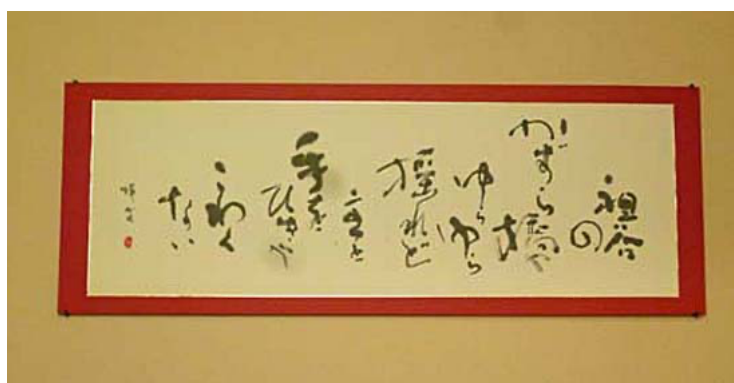 祖谷の
かずら橋や
ゆらゆら
揺れど
主と
手を
ひきや
こわく
ない